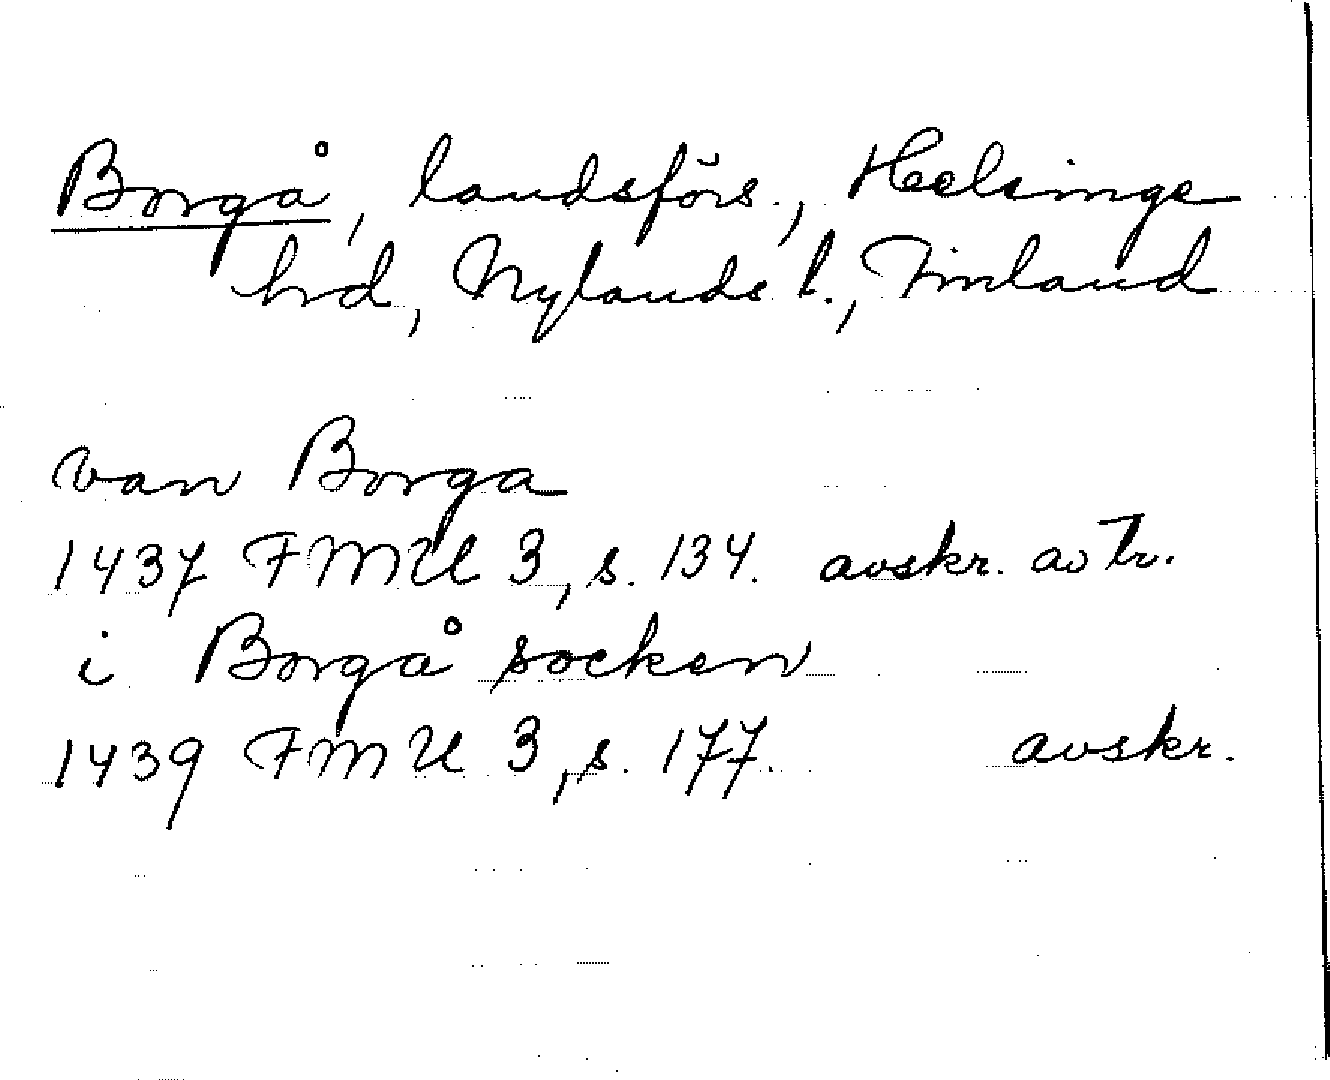 Borgå, landsförs., Helsinge
hrd, Nylands l., Finland
van Borga
1437 FMU 3, s. 134. avskr. av tr.
i Borgå socken
1439 FMU 3, s. 177. avskr.